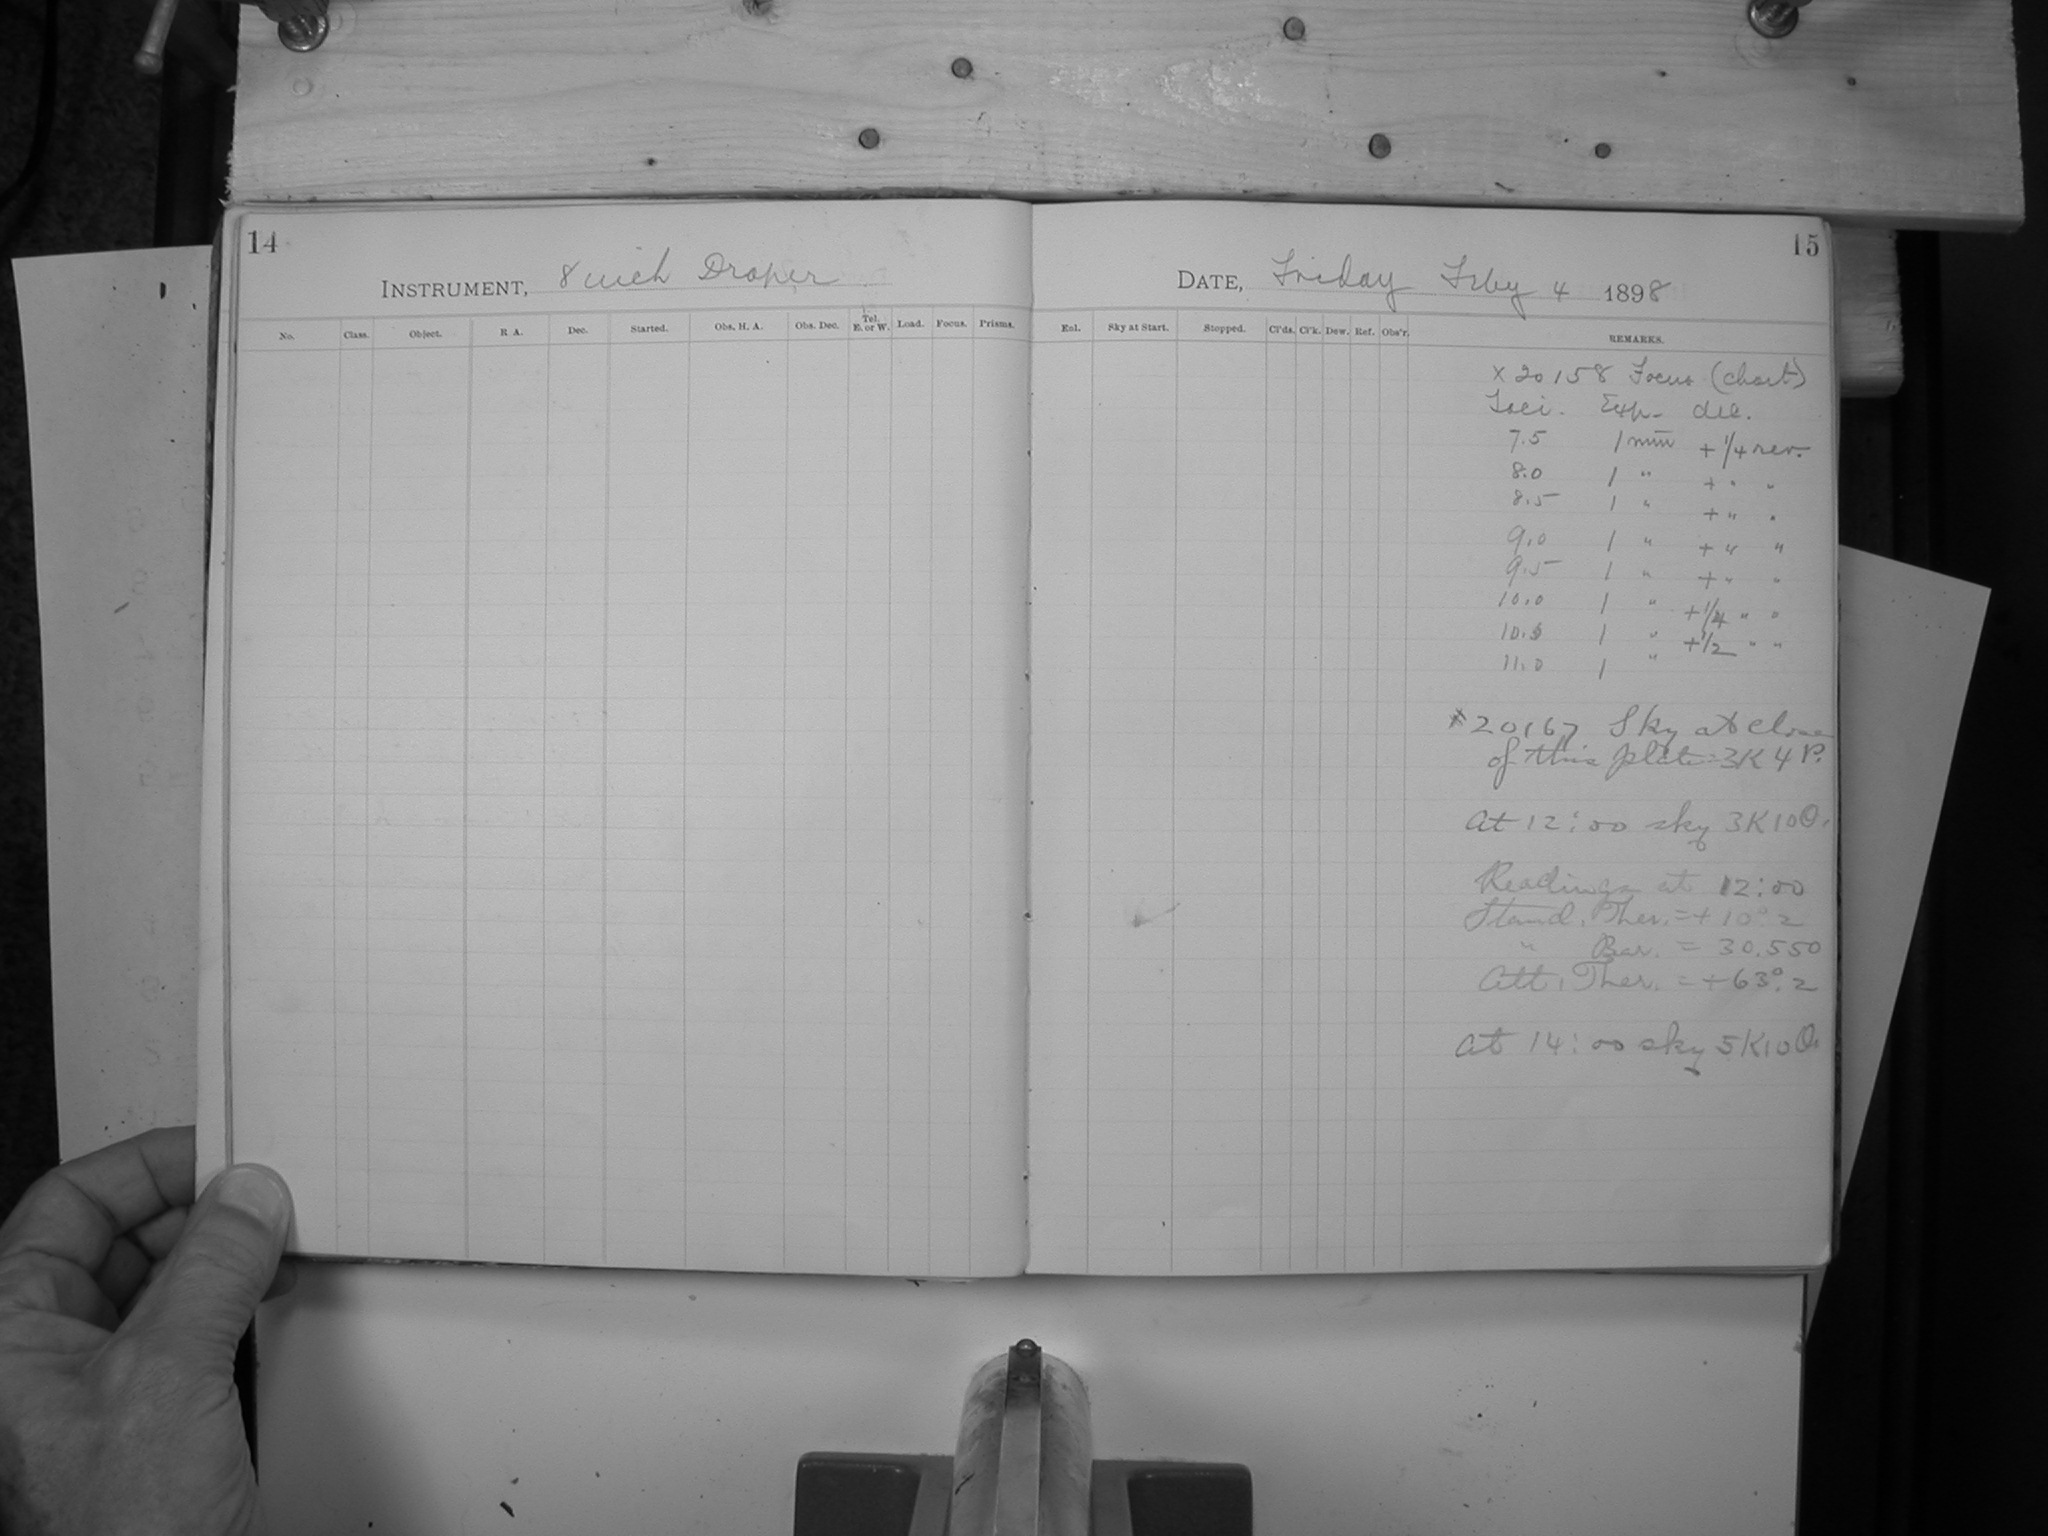 14
INSTRUMENT, 8 inch Draper
No. Class. Object. R A. Dec. Started. Obs. H. A. Obs. Dec. Tel. E. or W. Load. Focus. Prisms.
15
DATE, Friday Feby 4 1898
Enl. Sky at Start. Stopped. Cl'ds. Cl'k. Dew. Ref. Obs'r. REMARKS.
X 20158 Focus (chart)
Foci. Exp. dec.
7.5 1 min + 1/4 rev.
8.0 1 " + " "
8.5 1 " + " "
9.0 1 " + " "
9.5 1 " + " "
10.0 1 " + 1/4 " "
10.5 1 " + 1/2 " "
11.0 1 "
20167 Sky at close
of this plate 3K 4 P.
At 12:00 sky 3K10O.
Readings at 12:00
Stand. Ther. = + 10°2
" Bar. = 30.550
Att. Ther. = + 63°.2
At 14:00 sky 5K10O.